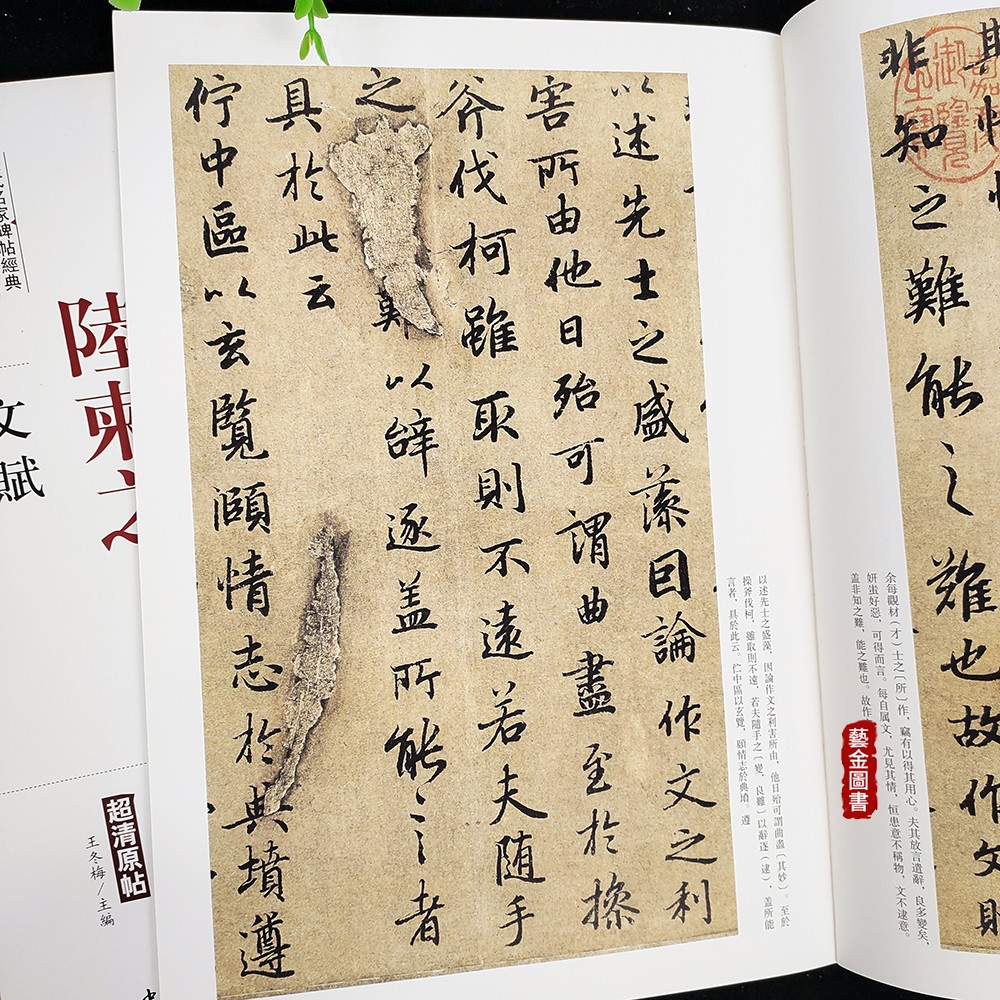 非知之難能之難也故作文
余每觀材（才）士之〔所〕作，竊有以得其用心。夫其放言遣辭，良多變矣，
妍蚩好惡，可得而言。每自属文，尤見其情，恒患意不稱物，文不逮意。
盖非知之難，能之難也。故作
藝金圖書
以述先士之盛藻因論作文之利
害所由他日殆可謂曲盡至於操
斧伐柯雖取則不遠若夫随手
之難以辭逐盖所能言者
具於此云
佇中區以玄覽頤情志於典墳遵
以述先士之盛藻，因論作文之利害所由，他日殆可謂曲盡〔其妙〕。至於
操斧伐柯，雖取則不遠，若夫隨手之〔變，良難〕以辭逐（逮），盖所能
言者，具於此云。伫中區以玄覽，頤情志於典墳。遵
名家碑帖經典
陸柬之
文賦
超清原帖
王冬梅/主編